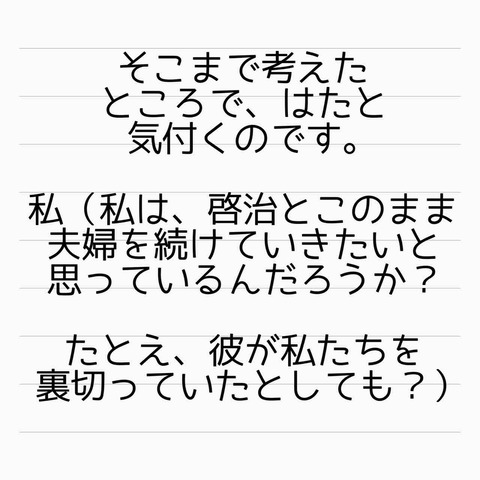 そこまで考えた
ところで、はたと
気付くのです。
私（私は、啓治とこのまま
夫婦を続けていきたいと
思っているんだろうか？
たとえ、彼が私たちを
裏切っていたとしても？）